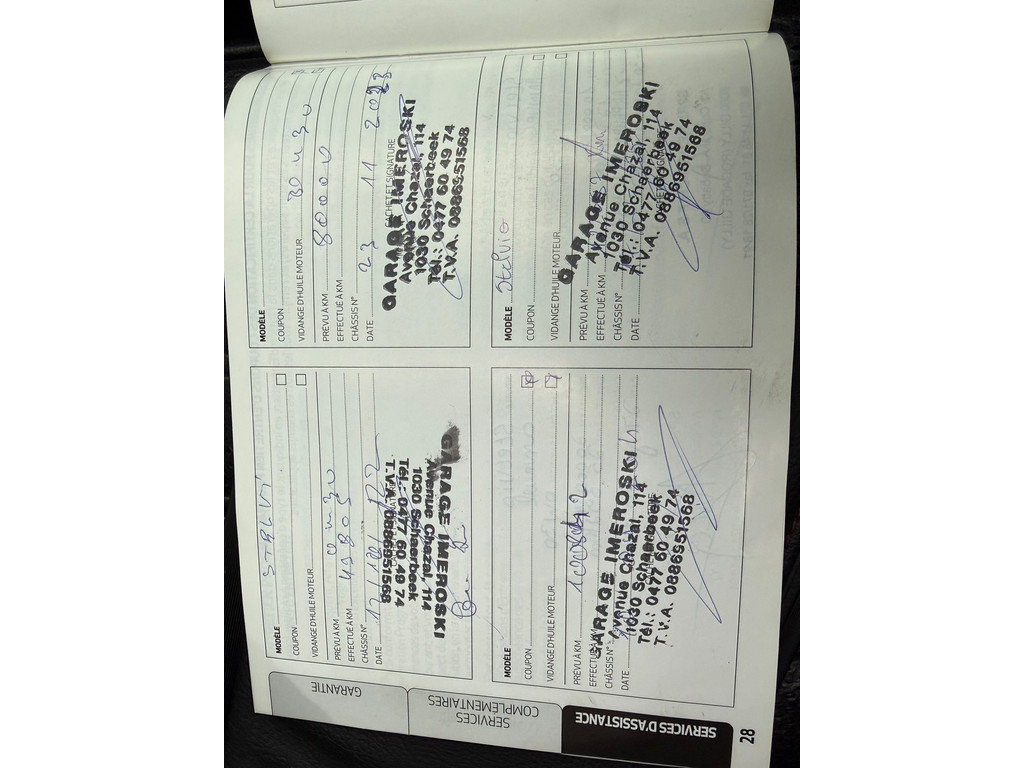 MODÈLE STELVI
COUPON
VIDANGE D'HUILE MOTEUR
PRÉVU À KM
EFFECTUÉ À KM
CHÂSSIS N°
DATE
GARAGE IMEROSKI
Avenue Chazal, 114
1030 Schaerbeek
Tél.: 0477 60 49 74
T.V.A. 0886951568
MODÈLE
COUPON
VIDANGE D'HUILE MOTEUR
PRÉVU À KM 80000
EFFECTUÉ À KM
CHÂSSIS N°
DATE 23 11 2023
CACHET ET SIGNATURE
GARAGE IMEROSKI
Avenue Chazal, 114
1030 Schaerbeek
Tél.: 0477 60 49 74
T.V.A. 0886951568
MODÈLE
COUPON
VIDANGE D'HUILE MOTEUR
PRÉVU À KM
EFFECTUÉ À KM
CHÂSSIS N°
DATE
GARAGE IMEROSKI
Avenue Chazal, 114
1030 Schaerbeek
Tél.: 0477 60 49 74
T.V.A. 0886951568
MODÈLE Stelvio
COUPON
VIDANGE D'HUILE MOTEUR
PRÉVU À KM
EFFECTUÉ À KM
CHÂSSIS N°
DATE
GARAGE IMEROSKI
Avenue Chazal, 114
1030 Schaerbeek
Tél.: 0477 60 49 74
T.V.A. 0886951568
GARANTIE
SERVICES
COMPLÉMENTAIRES
SERVICES D'ASSISTANCE
28